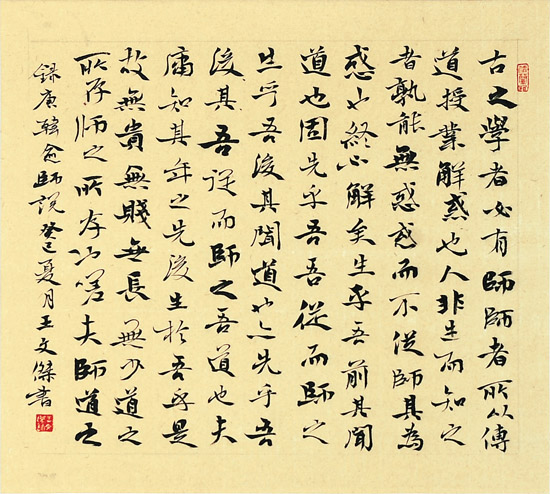 古之學者必有師師者所以傳
道授業解惑也人非生而知之
者孰能無惑惑而不從師其為
惑也終不解矣生乎吾前其聞
道也固先乎吾吾從而師之
生乎吾後其聞道也亦先乎吾
後其吾從而師之吾道也夫
庸知其年之先後生於吾乎是
故無貴無賤無長無少道之
所存師之所存也嗟夫師道之
錄唐韓愈師說癸巳夏月王文傑書